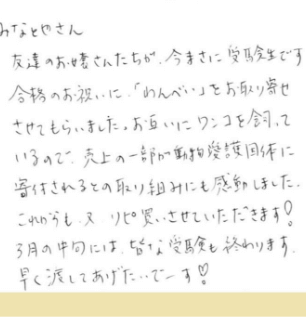 みなとやさん
友達のお嬢さんたちが、今まさに受験生です
合格のお祝いに、「わんべい」をお取り寄せ
させてもらいました。お互いにワンコを飼って
いるので、売上の一部が動物愛護団体に
寄付されるとの取り組みにも感動しました。
これからも、又リピ買いさせていただきます!
3月の中旬には、皆な受験も終わります。
早く渡してあげたいでーす♡